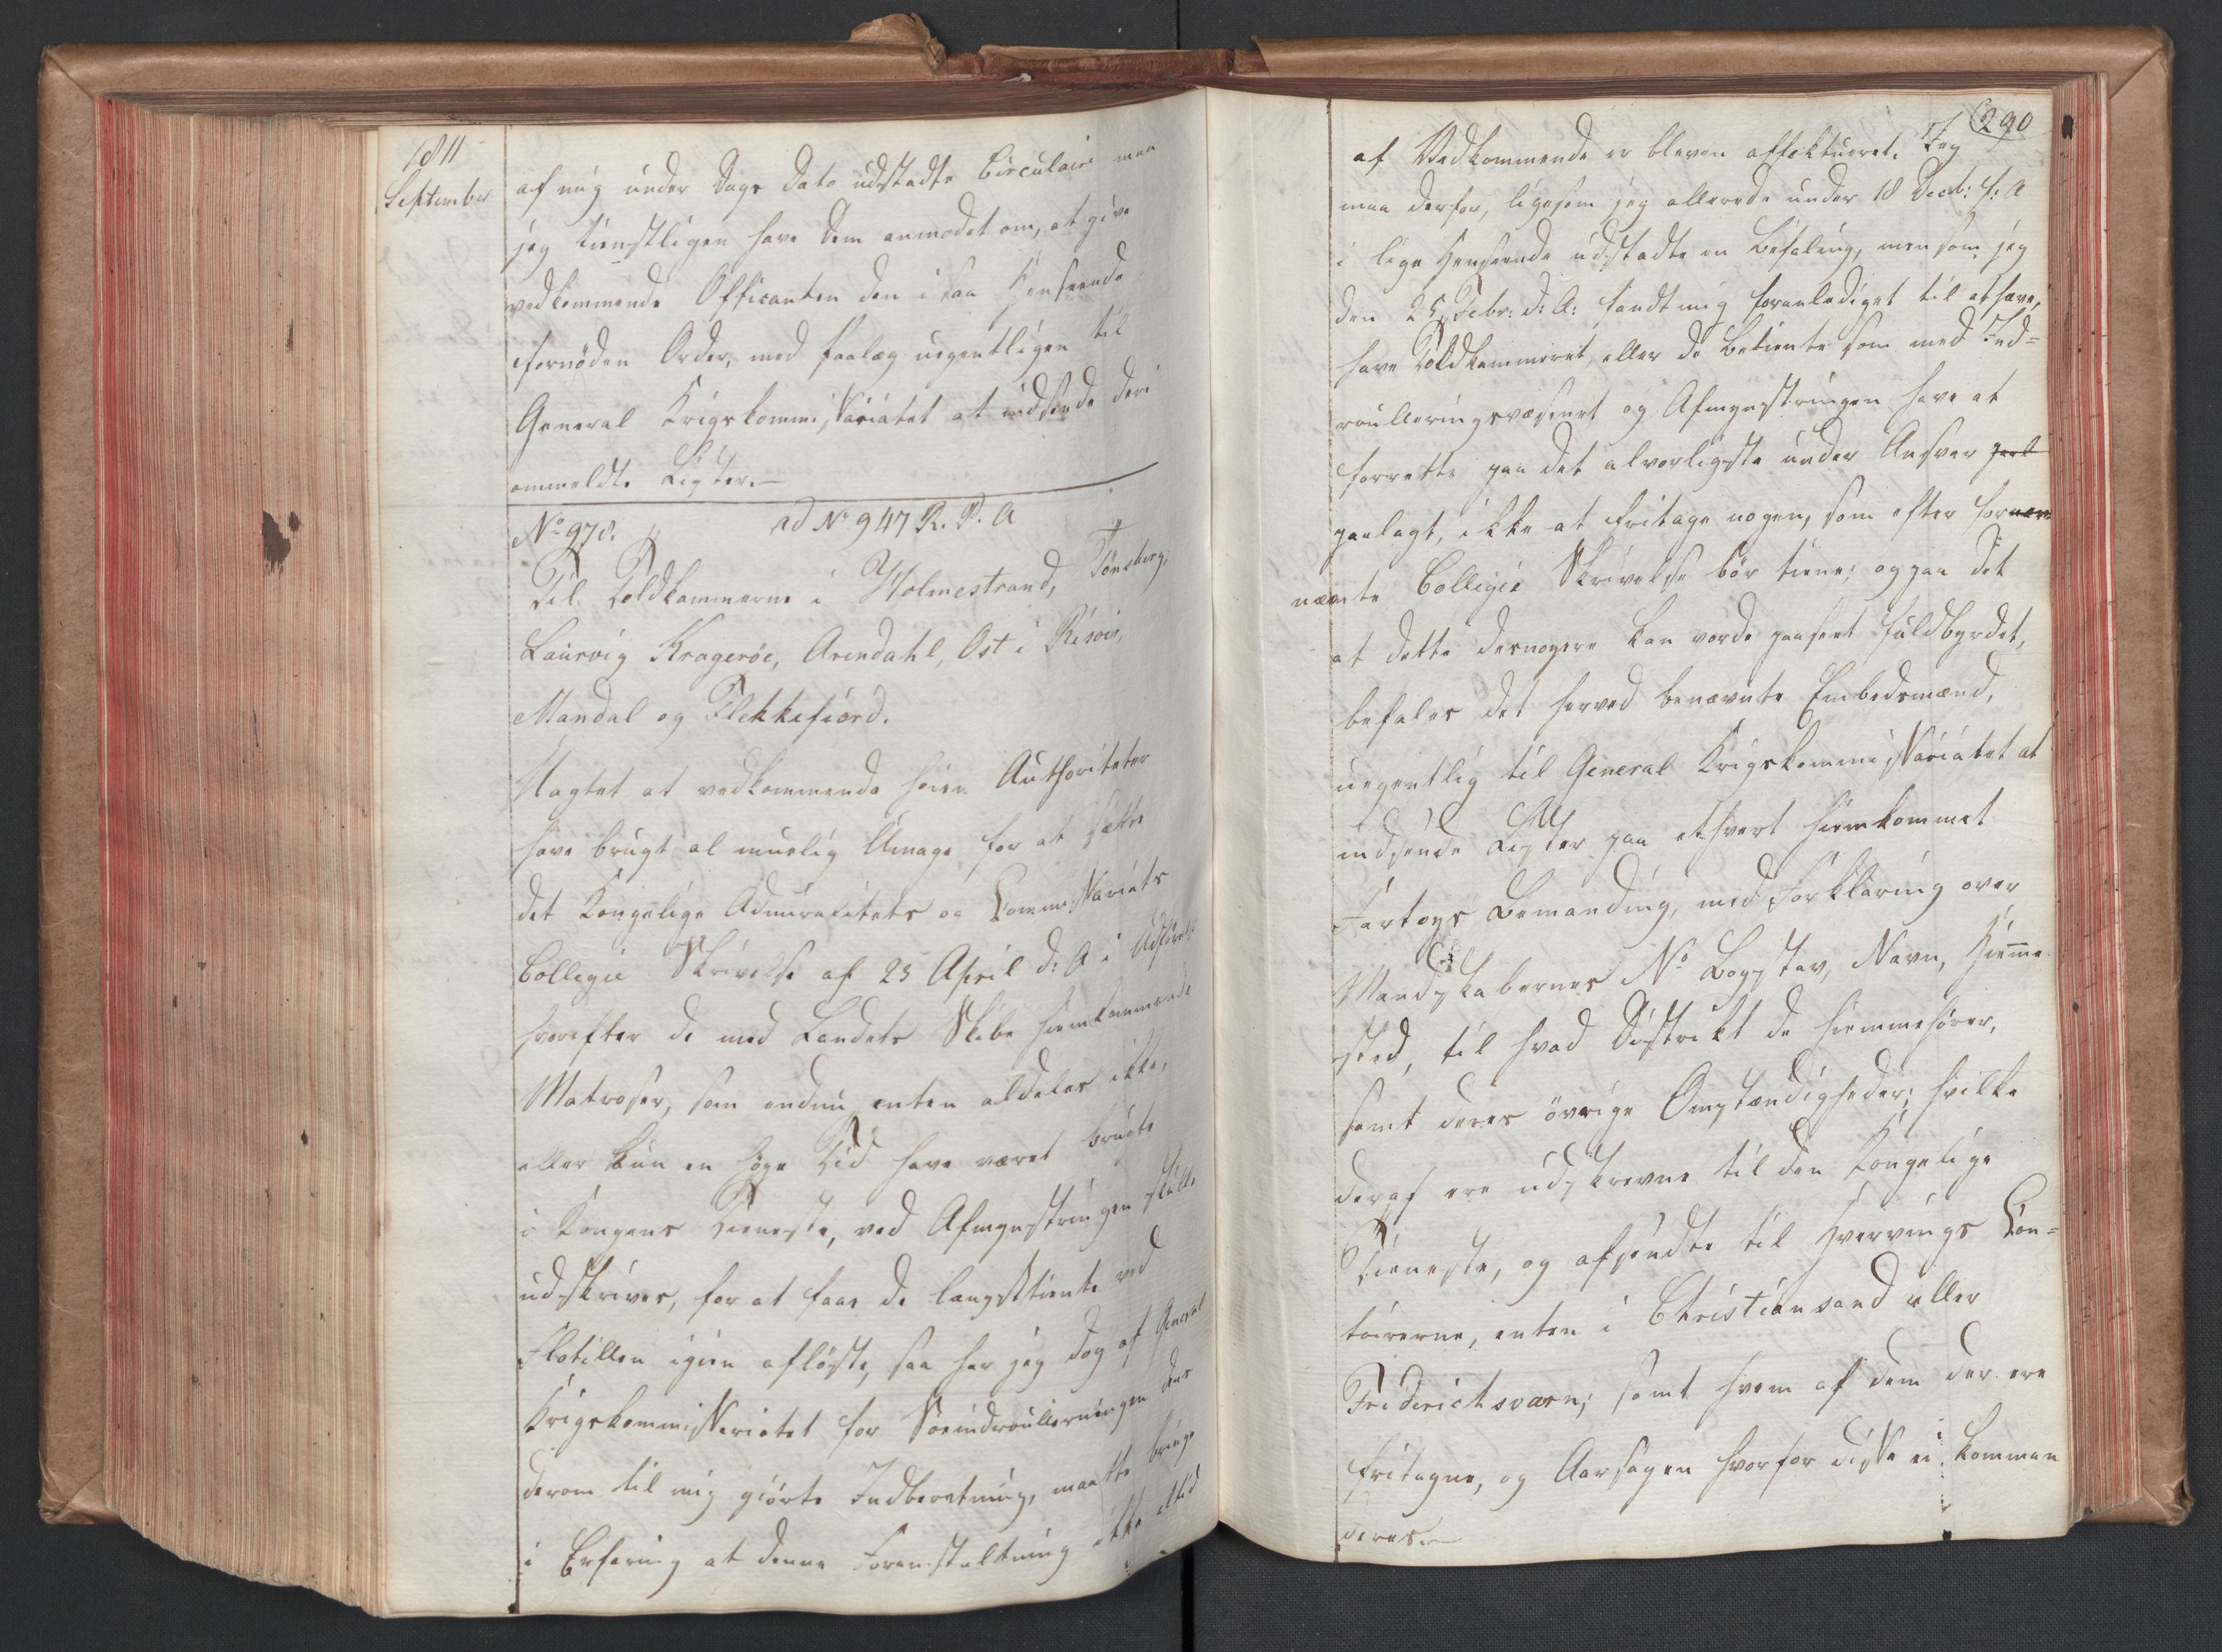 1811
September
af mig under Dags Dato udstædte Circulair maa
jeg tienstligen have Dem anmodet om, at give
vedkommende Officanten den i saa Henseende
fornöden Order, med Paalæg ugentligen til
General Krigskommissariatet at indsende deri
ommeldte Lister.—
No 978. ad No 947 R. P. A
Til Toldkammerne i Holmestrand, Tönsberg,
Laurvig Krageröe, Arendahl, Öst i Risöir,
Mandal og Flekkefiord.
Uagtet at vedkommende höie Authoriteter
have brugt al muelig Umage, for at sætte
det Kongelige Admiralitets og Commissariats
Collegie Skrivelse af 23 April d: A i Udförelse
hvorefter de med Landets Skibe hiemkommende
Matroser, som endnu enten aldeles ikke,
eller kun en föye Tid have været brugte
i Kongens Tieneste, ved Afmynstringen skulle
udskrives, for at faae de længsttiente ved
Flotillen igien aflöste, saa har jeg dog af General
Krigskommissariatet for Söeindroulleringen dens
derom til mig giörte Indberetning, maatte bringe
i Erfaring at denne Foranstaltning ikke altid
290
af Vedkommende er bleven effektueret. Jeg
maa derfor, ligesom jeg allerede under 18 Decb: f: A
i lige Henseende udstædte en Befaling, men som jeg
den 25 Febr: d: A: fandt mig foranlediget til at hæve,
have Toldkammeret eller de Betiente som med Ind=
roulleringsvæsenet og Afmynstringen have at
forrette paa det alvorligste under Ansvar
paalagt, ikke at fritage nogen, som efter for
nævnte Collegii Skrivelse bör tiene; og paa det
at dette desnöyere kan vorde paaseet fuldbyrdet,
befales det herved benævnte Embedsmænd,
ugentlig til General Krigskommissariatet at
indsende Lister paa ethvert hiemkommet
Fartöys Bemanding, med Forklaring over
Mandskabernes No Bogstav, Navn, Hiemme
sted, til hvad Distrikt de hiemmehörer,
samt deres övrige Omstændigheder; hvilke
deraf ere udskrevne til den Kongelige
Tieneste, og afsendte til Hvervings Con=
toirerne, enten i Christiansand eller
Friderichsværn; samt hvem af dem der ere
fritagne, og Aarsagen hvorfor disse ei komman
deres.—